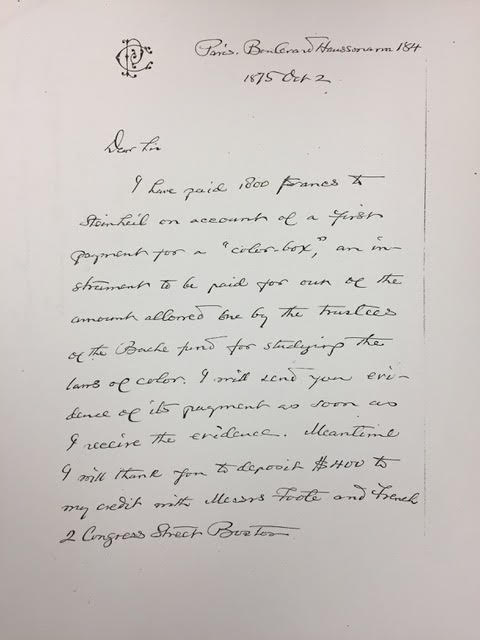 Paris. Boulevard Haussmann 184
1875 Oct 2
Dear Sir
I have paid 1800 francs to
Steinheil on account of a first
payment for a "color-box," an in-
strument to be paid for out of the
amount allowed me by the trustees
of the Bache fund for studying the
laws of color. I will send you evi-
dence of its payment as soon as
I receive the evidence. Meantime
I will thank you to deposit $400 to
my credit with Messrs Foote and French
2 Congress Street Boston